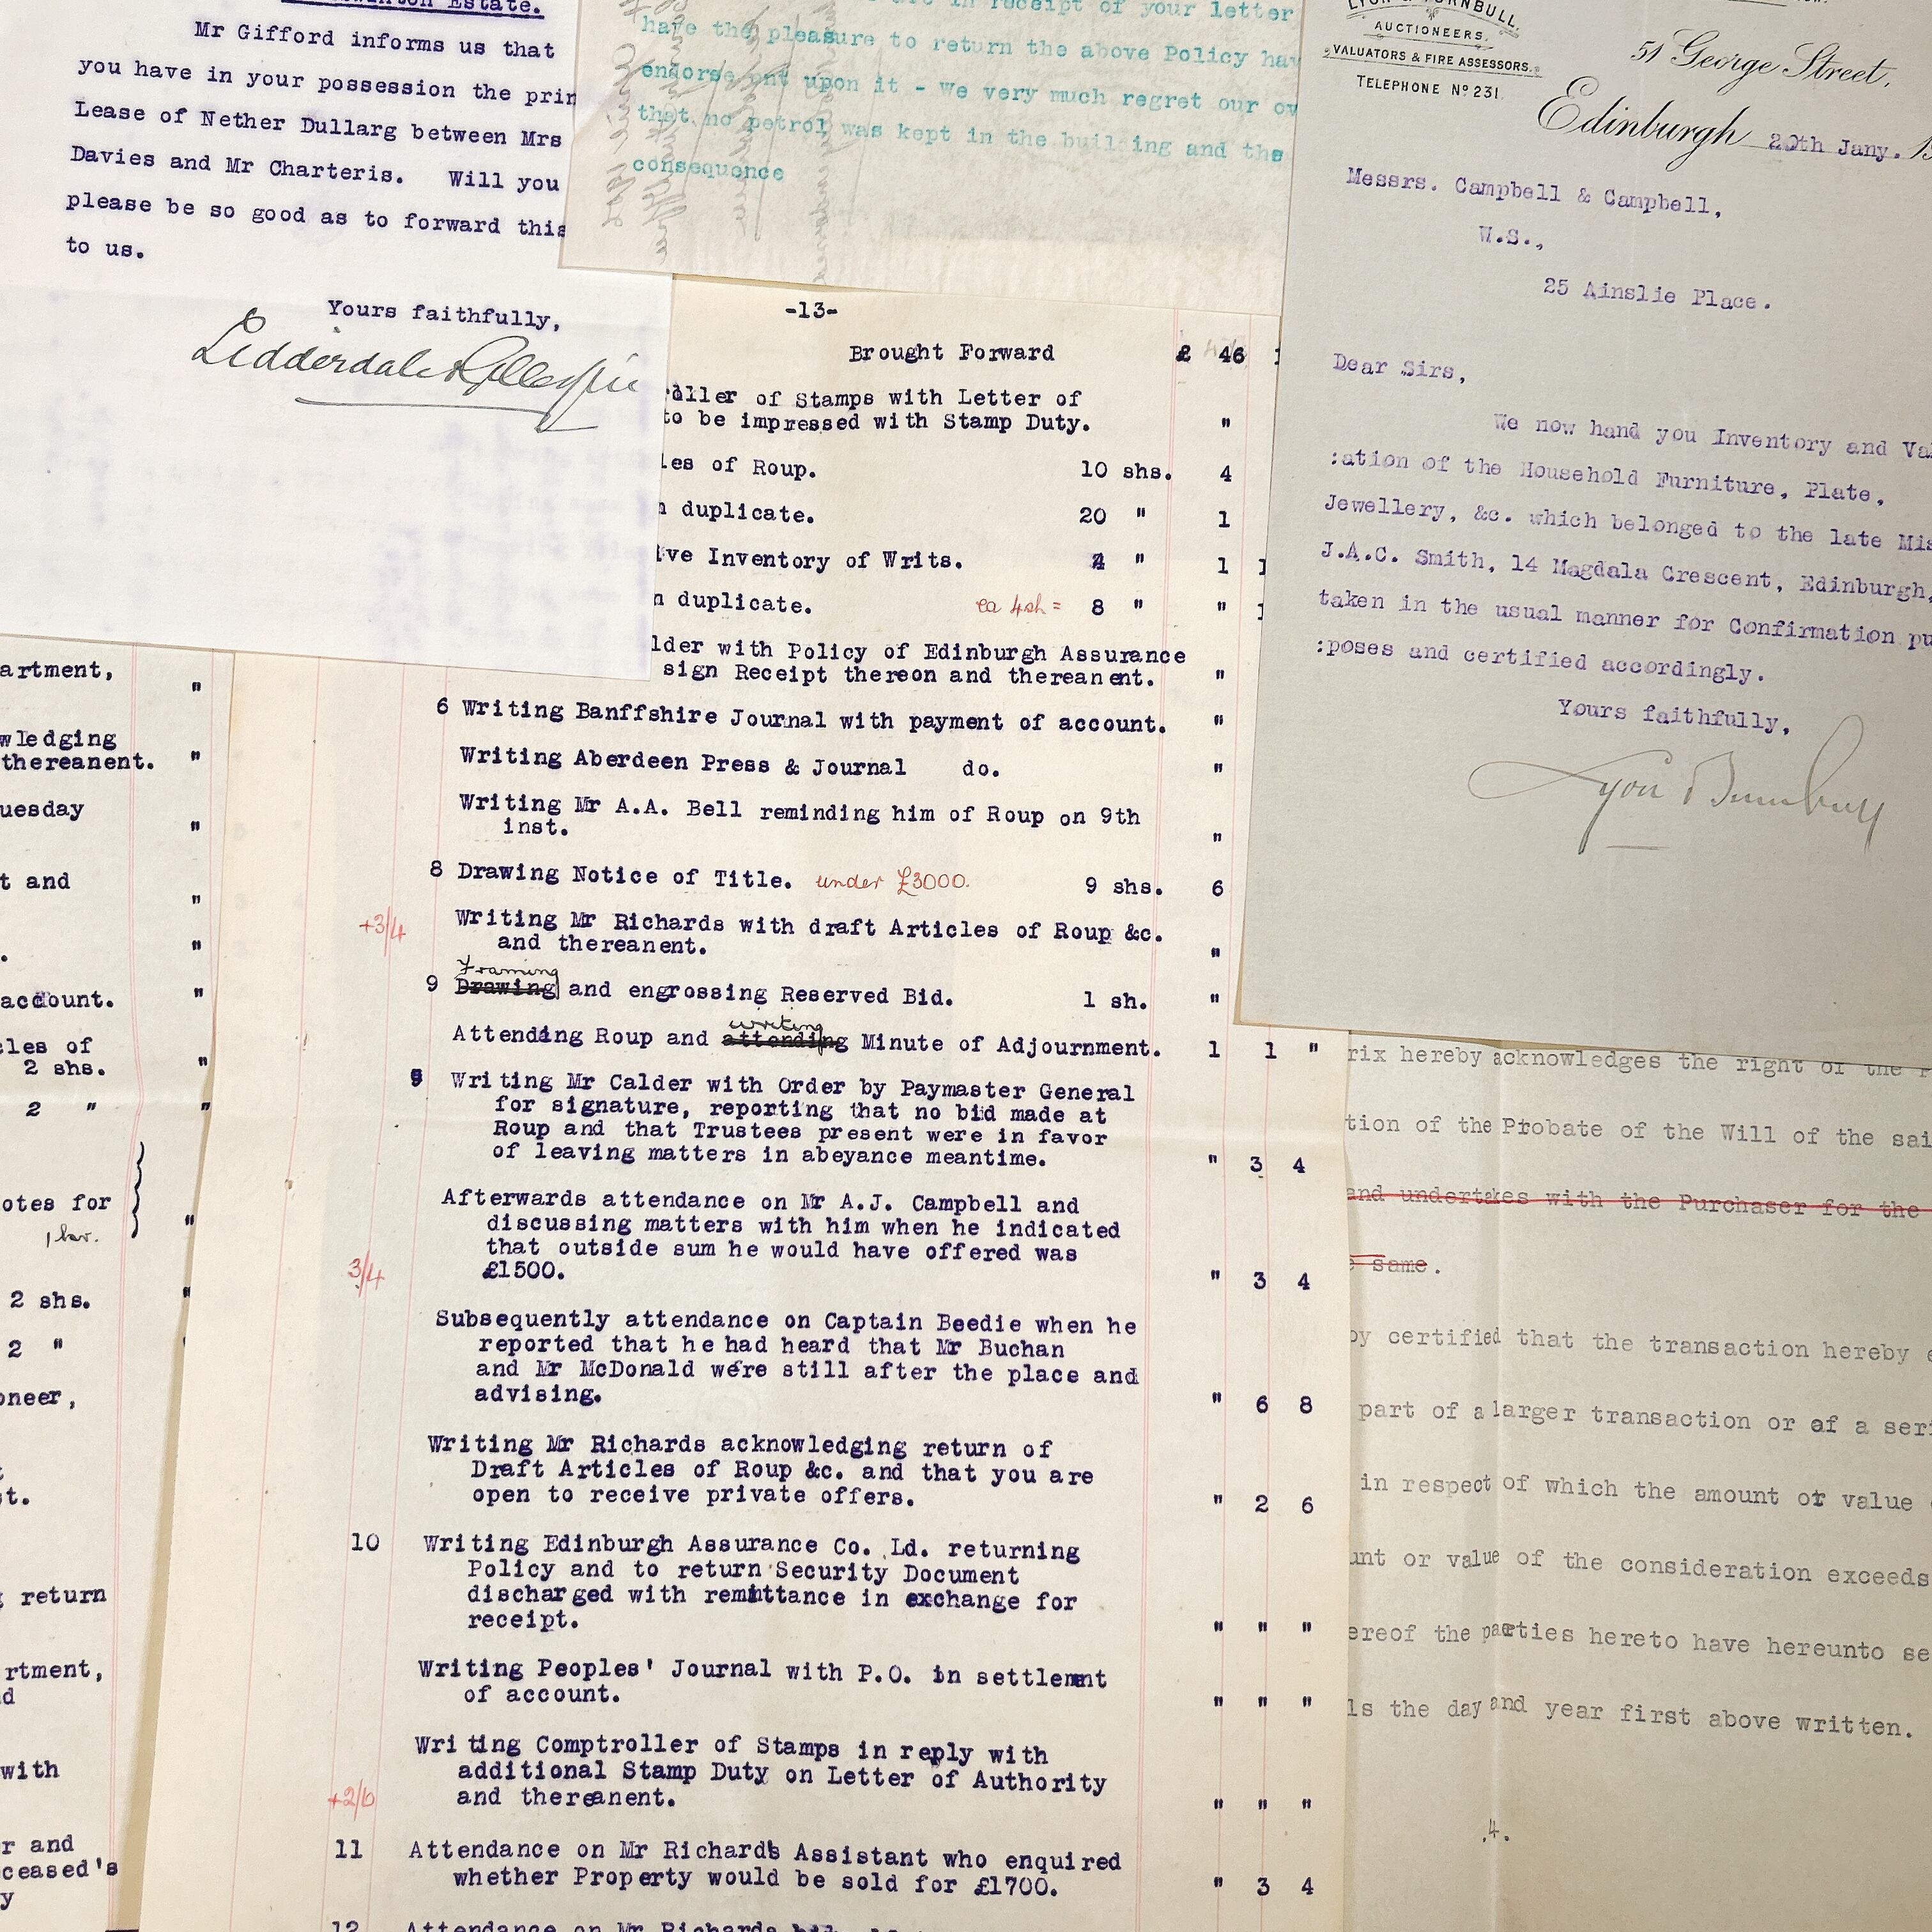 Estate.
Mr Gifford informs us that
you have in your possession the prin
Lease of Nether Dullarg between Mrs
Davies and Mr Charteris. Will you
please be so good as to forward this
to us.
Yours faithfully,
Lidderdale & Gillespie
in receipt of your letter
have the pleasure to return the above Policy hav
upon it - We very much regret our ov
that no petrol was kept in the building and the
consequence
LYON & TURNBULL,
AUCTIONEERS,
VALUATORS & FIRE ASSESSORS.
TELEPHONE Nº 231.
51 George Street,
Edinburgh 20th Jany. 1
Messrs. Campbell & Campbell,
W.S.,
25 Ainslie Place.
Dear Sirs,
We now hand you Inventory and Va
:ation of the Household Furniture, Plate,
Jewellery, &c. which belonged to the late Mis
J.A.C. Smith, 14 Magdala Crescent, Edinburgh,
taken in the usual manner for Confirmation pu
:poses and certified accordingly.
Yours faithfully,
Lyon & Turnbull
-13-
Brought Forward £ 46 1
oller of Stamps with Letter of
to be impressed with Stamp Duty. "
les of Roup. 10 shs. 4
n duplicate. 20 " 1
ive Inventory of Writs. 4 " 1 1
n duplicate. ea 4sh = 8 " " 1
lder with Policy of Edinburgh Assurance
sign Receipt thereon and thereanent. "
6 Writing Banffshire Journal with payment of account. "
Writing Aberdeen Press & Journal do. "
Writing Mr A.A. Bell reminding him of Roup on 9th
inst. "
8 Drawing Notice of Title. under £3000. 9 shs. 6
+3/4 Writing Mr Richards with draft Articles of Roup &c.
and thereanent. "
Framing
9 Drawing and engrossing Reserved Bid. 1 sh. "
writing
Attending Roup and attending Minute of Adjournment. 1 1 "
9 Writing Mr Calder with Order by Paymaster General
for signature, reporting that no bid made at
Roup and that Trustees present were in favor
of leaving matters in abeyance meantime. " 3 4
Afterwards attendance on Mr A.J. Campbell and
discussing matters with him when he indicated
that outside sum he would have offered was
3/4 £1500. " 3 4
Subsequently attendance on Captain Beedie when he
reported that he had heard that Mr Buchan
and Mr McDonald were still after the place and
advising. " 6 8
Writing Mr Richards acknowledging return of
Draft Articles of Roup &c. and that you are
open to receive private offers. " 2 6
10 Writing Edinburgh Assurance Co. Ld. returning
Policy and to return Security Document
discharged with remittance in exchange for
receipt. " " "
Writing Peoples' Journal with P.O. in settlement
of account. " " "
Writing Comptroller of Stamps in reply with
additional Stamp Duty on Letter of Authority
+2/6 and thereanent. " " "
11 Attendance on Mr Richards Assistant who enquired
whether Property would be sold for £1700. " 3 4
12 Attendance on Mr Richards
artment, "
wledging
thereanent. "
uesday
"
t and
"
. "
account. "
cles of
2 shs. "
2 " "
otes for
"
2 shs. "
2 "
oneer,
t.
g return
rtment,
d
with
r and
ceased's
y
rix hereby acknowledges the right of the P
tion of the Probate of the Will of the sai
and undertakes with the Purchaser for the
e same.
by certified that the transaction hereby e
part of a larger transaction or of a seri
in respect of which the amount or value o
unt or value of the consideration exceeds
ereof the parties hereto have hereunto se
ls the day and year first above written.
.4.